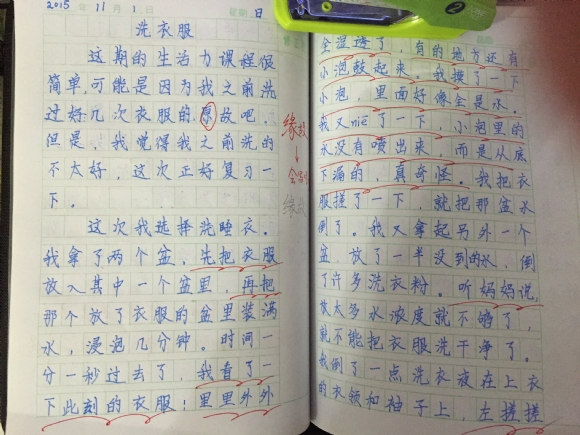 2015年11月1日 星期日
洗衣服
这期的生活力课程很
简单,可能是因为我之前洗
过好几次衣服的原故吧.
但是,我觉得我之前洗的
不太好,这次正好复习一
下。
这次我选择洗睡衣。
我拿了两个盆,先把衣服
放入其中一个盆里,再把
那个放了衣服的盆里装满
水,浸泡几分钟。时间一
分一秒过去了,我看了一
下此刻的衣服:里里外外
缘故
缘故
全湿透了,有的地方还有
小泡鼓起来,我摸了一下
小泡,里面好像全是水.
我又nie了一下,小泡里的
水没有喷出来,而是从底
下涌的,真奇怪。我把衣
服搓了一下,就把那盆水
倒了。我又拿起另外一个
盆,放了一半没到的水,倒
了许多洗衣粉。听妈妈说,
放太多水浓度就不够了,
就不能把衣服洗干净了。
我倒了一点洗衣液在上衣
的衣领和袖子上,左搓搓
2